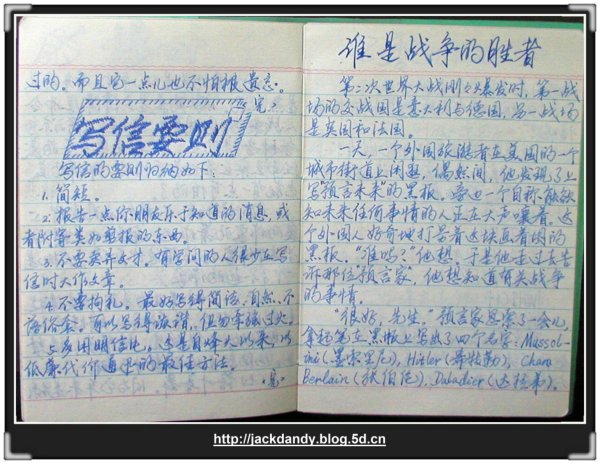 过的。而且它一点儿也不怕被遗忘。
完
写信要则
写信的要则归纳如下:
1. 简短。
2. 报告一点你朋友乐于知道的消息, 或
者附寄类如剪报的东西。
3. 不要卖弄文才。有学问的人很少在写
信时大作文章。
4. 不要拘礼。最好写得简洁、自然、不
落俗套。可以写得诙谐, 但勿牵强过火。
5. 多用明信片。这是自烽火以来, 以
低廉代价通里的最佳方法。
完
谁是战争的胜者
第二次世界大战刚刚爆发时, 第一战
场的交战国是意大利与德国, 另一战场
是英国和法国。
一天, 一个外国旅游者在美国的一个
城市街道上闲逛, 偶然间, 他发现了上
写预言未来的黑板。旁边一个自称能够
知未来任何事情的人正在大声嚷着。这
个外国人好奇地打量着这块直着的
黑板。"准吗?"他想。于是他走过去告
诉那位预言家, 他想知道有关战争
的事情。
"很好, 先生。"预言家思索了一会儿,
拿粉笔在黑板上写处了四个名字: Mussol-
ini (墨索里尼), Hitler (希特勒), Cham
Berlain (张伯伦), Daladier (达拉第)。
http://jackdandy.blog.5d.cn